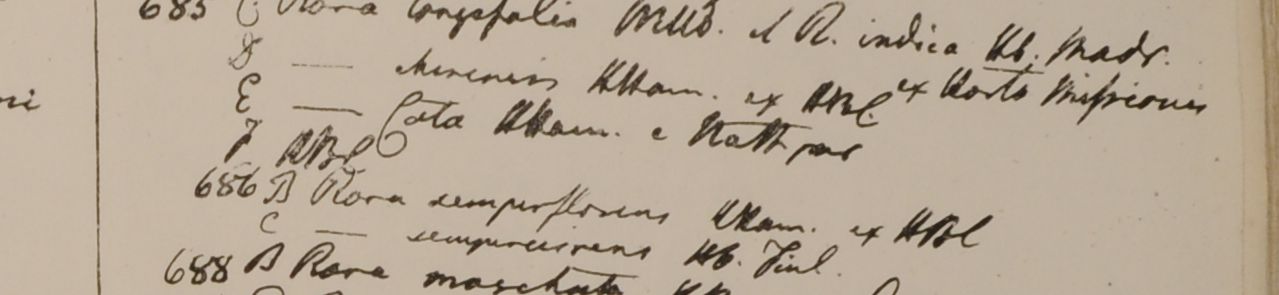 685 C Rosa longifolia Willd. & R. indica Hb. Madr.
D — chinensis HHam. ex HBC ex Horto Missionis
E — Cota HHam. e Nathpur
F HBC
686 B Rosa semperflorens HHam. ex HBC
C — sempervirens Hb. Finl.
688 B Rosa moschata